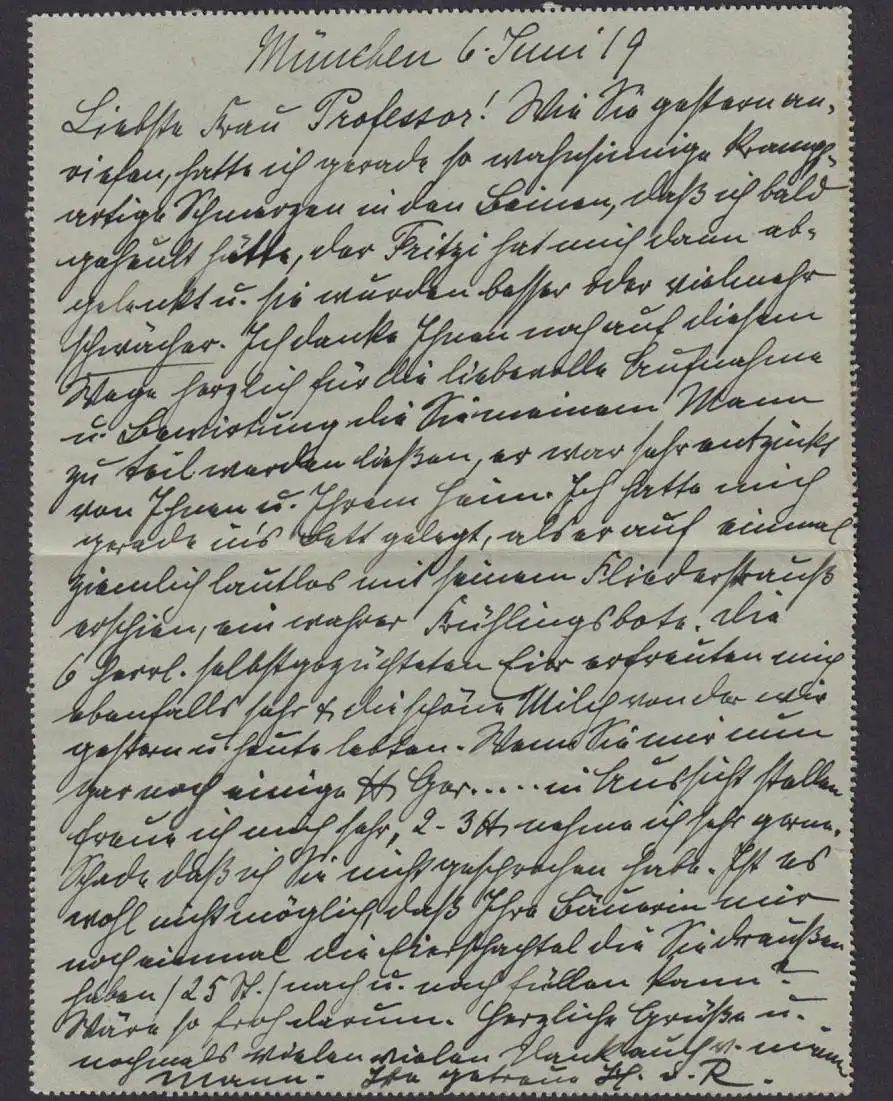 München 6. Juni 19
Liebste Frau Professor! Wie Sie gestern an-
riefen, hatte ich gerade so wahnsinnige krampf-
artige Schmerzen in den Beinen, daß ich bald
geheult hätte, der Fritzi hat mich dann ab-
gelenkt u. sie wurden besser oder vielmehr
schwächer. Ich danke Ihnen noch auf diesem
Wege herzlich für die liebevolle Aufnahme
u. Bewirtung die Sie meinem Mann
zu teil werden ließen, er war sehr entzückt
von Ihnen u. Ihrem Heim. Ich hatte mich
gerade in's Bett gelegt, als er auf einmal
ziemlich lautlos mit seinem Fliederstrauß
erschien, ein wahrer Frühlingsbote. Die
6 herrl. selbstgezüchteten Eier erfreuten mich
ebenfalls sehr & die schöne Milch von der wir
gestern u. heute lebten. Wenn Sie mir nun
gar noch einige ℔ Ger..... in Aussicht stellen
freue ich mich sehr, 2-3 ℔ nehme ich sehr gerne.
Schade daß ich Sie nicht gesprochen habe. Ist es
wohl nicht möglich, daß Ihre Bäuerin mir
noch einmal die Eierschachtel die Sie draußen
haben (25 St.) nach u. nach füllen kann?
Wäre so froh darum. Herzliche Grüße u.
nochmals vielen vielen Dank auch v. meinem
Mann. Ihre getreue v. R.